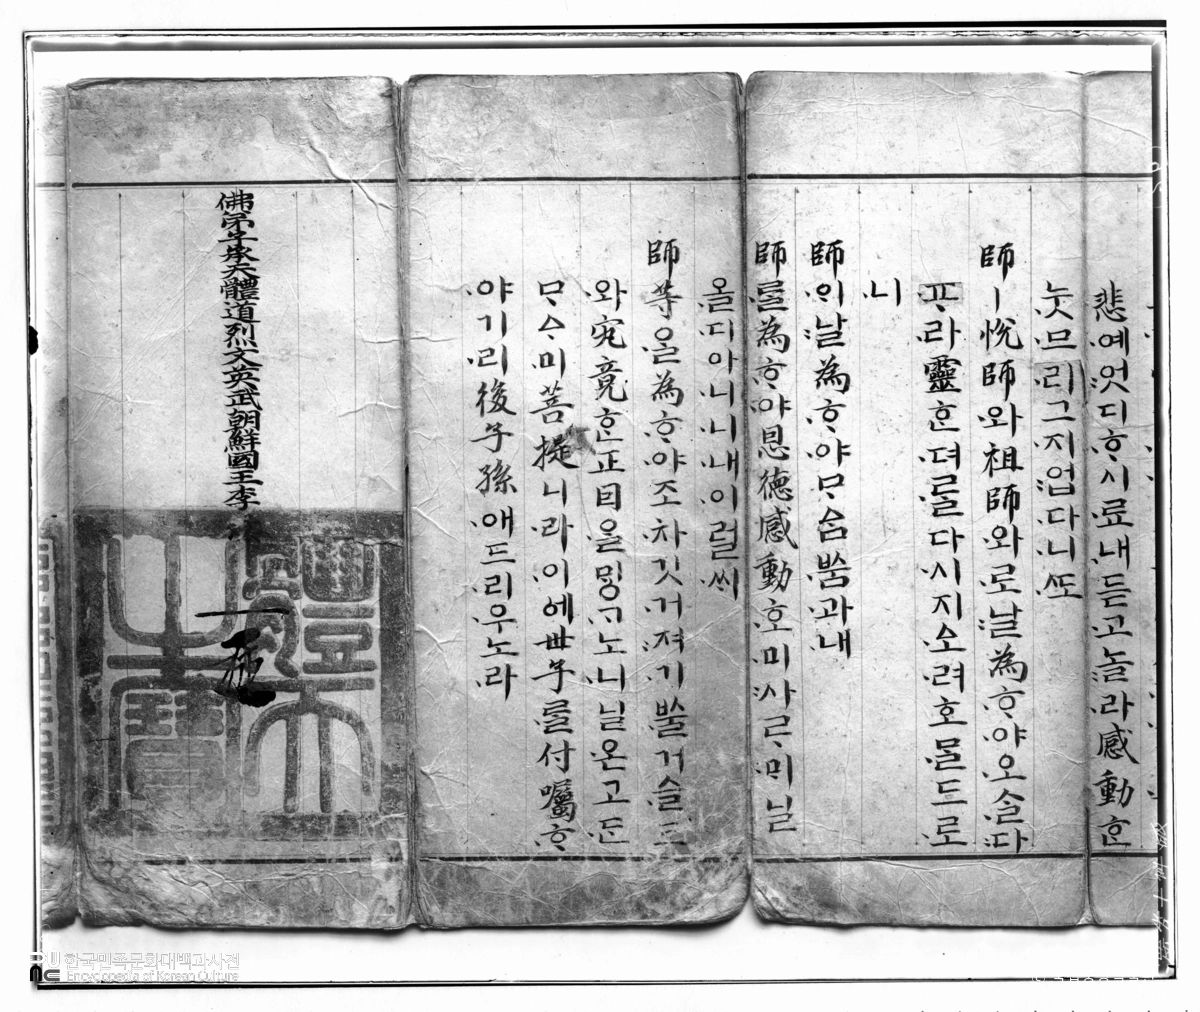 悲예엇디ᄒᆞ시료내듣고놀라感動ᄒᆞᆫ
눗므리그지업다니ᄯᅩ
師ㅣ悅師와祖師와로날為ᄒᆞ야오ᄉᆞᆯ다
ᄑᆞ라靈ᄒᆞᆫ뎌ᄅᆞᆯ다시지ᅀᅩ려호ᄆᆞᆯ드로
니
師의날為ᄒᆞ야ᄆᆞᅀᆞᆷᄡᅮᆷ과내
師ᄅᆞᆯ為ᄒᆞ야恩德感動호미사ᄅᆞ미닐
올디아니니내이럴ᄊᆡ
師等을為ᄒᆞ야조차깃거져기ᄡᅳᆯ거슬도
와究竟ᄒᆞᆫ正因을ᄆᆡᇰᄀᆞ노니닐온고ᄃᆞᆫ
ᄆᆞᅀᆞ미菩提니라이에世子ᄅᆞᆯ付囑ᄒᆞ
야기리後子孫애드리우노라
佛弟子承天體道烈文英武朝鮮國王李
體天之寶
한국민족문화대백과사전
Encyclopedia of Korean Culture